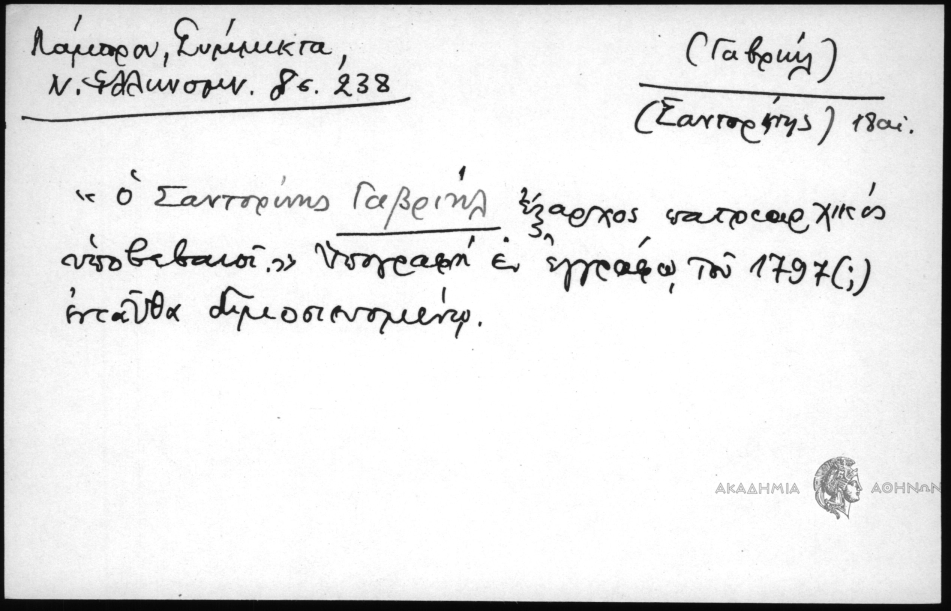 Λάμπρου, Σύμμικτα,
Ν. Ελληνομν. 8 σ. 238
(Γαβριήλ)
(Σαντορίνης) 18 αι.
« ὁ Σαντορίνης Γαβριήλ ἔξαρχος πατριαρχικός
ὑποβεβαιοῖ.» Ὑπογραφή ἐν ἐγγράφῳ τοῦ 1797(;)
ἐνταῦθα δημοσιευομένῳ.
ΑΚΑΔΗΜΙΑ ΑΘΗΝΩΝ